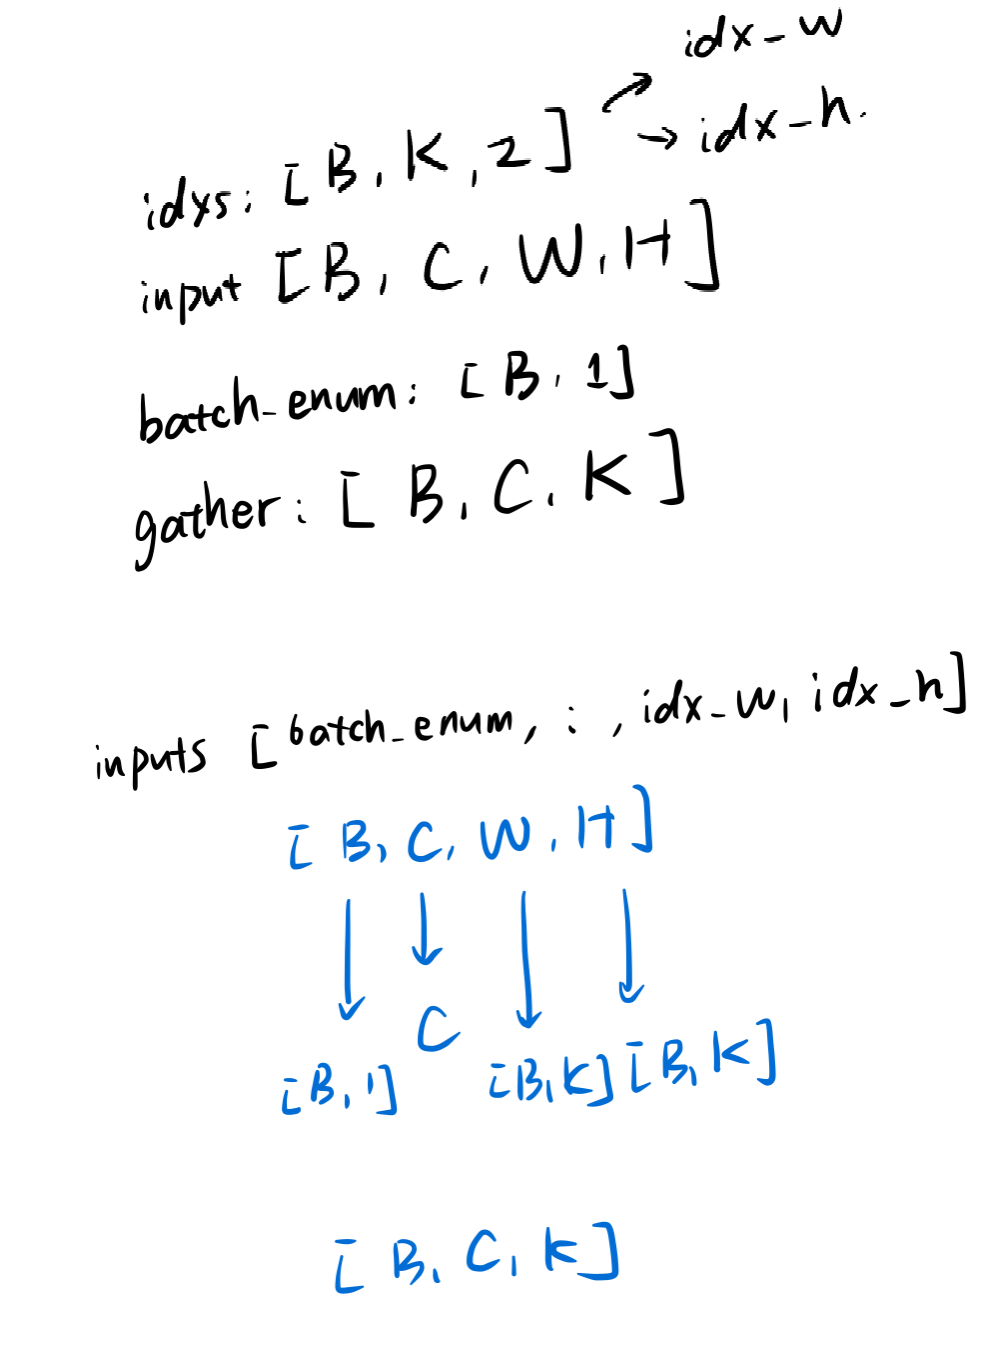 idx_w
idxs: [B, K, 2] → idx_h.
input [B, C, W, H]
batch_enum: [B, 1]
gather: [B, C, K]
inputs [batch_enum, :, idx_w, idx_h]
[B, C, W, H]
C
[B, 1] [B, K] [B, K]
[B, C, K]